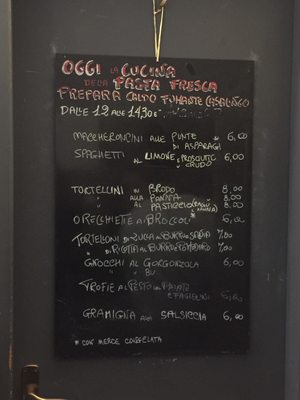 OGGI LA CUCINA
DELLA PASTA FRESCA
PREPARA CALDO FUMANTE CASALINGO
DALLE 12 ALLE 14.30
MACCHERONCINI ALLE PUNTE 6,00
DI ASPARAGI
SPAGHETTI AL LIMONE E PROSCIUTTO CRUDO 6,00
TORTELLINI IN BRODO 8,00
" ALLA PANNA 8,00
" AL PASTICCIO 8,00
ORECCHIETTE AI BROCCOLI* 6,00
TORTELLONI DI ZUCCA AL BURRO E SALVIA 7,00
" DI RICOTTA AL BURRO E POMODORO 7,00
GNOCCHI AL GORGONZOLA 6,00
TROFIE AL PESTO CON PATATE
E FAGIOLINI 6,00
GRAMIGNA ALLA SALSICCIA 6,00
* CON MERCE CONGELATA